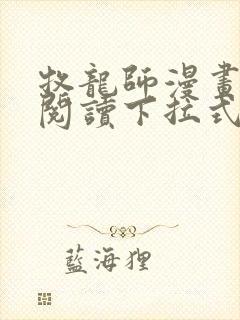 牧龍師漫畫
閱讀下拉式
藍海狸